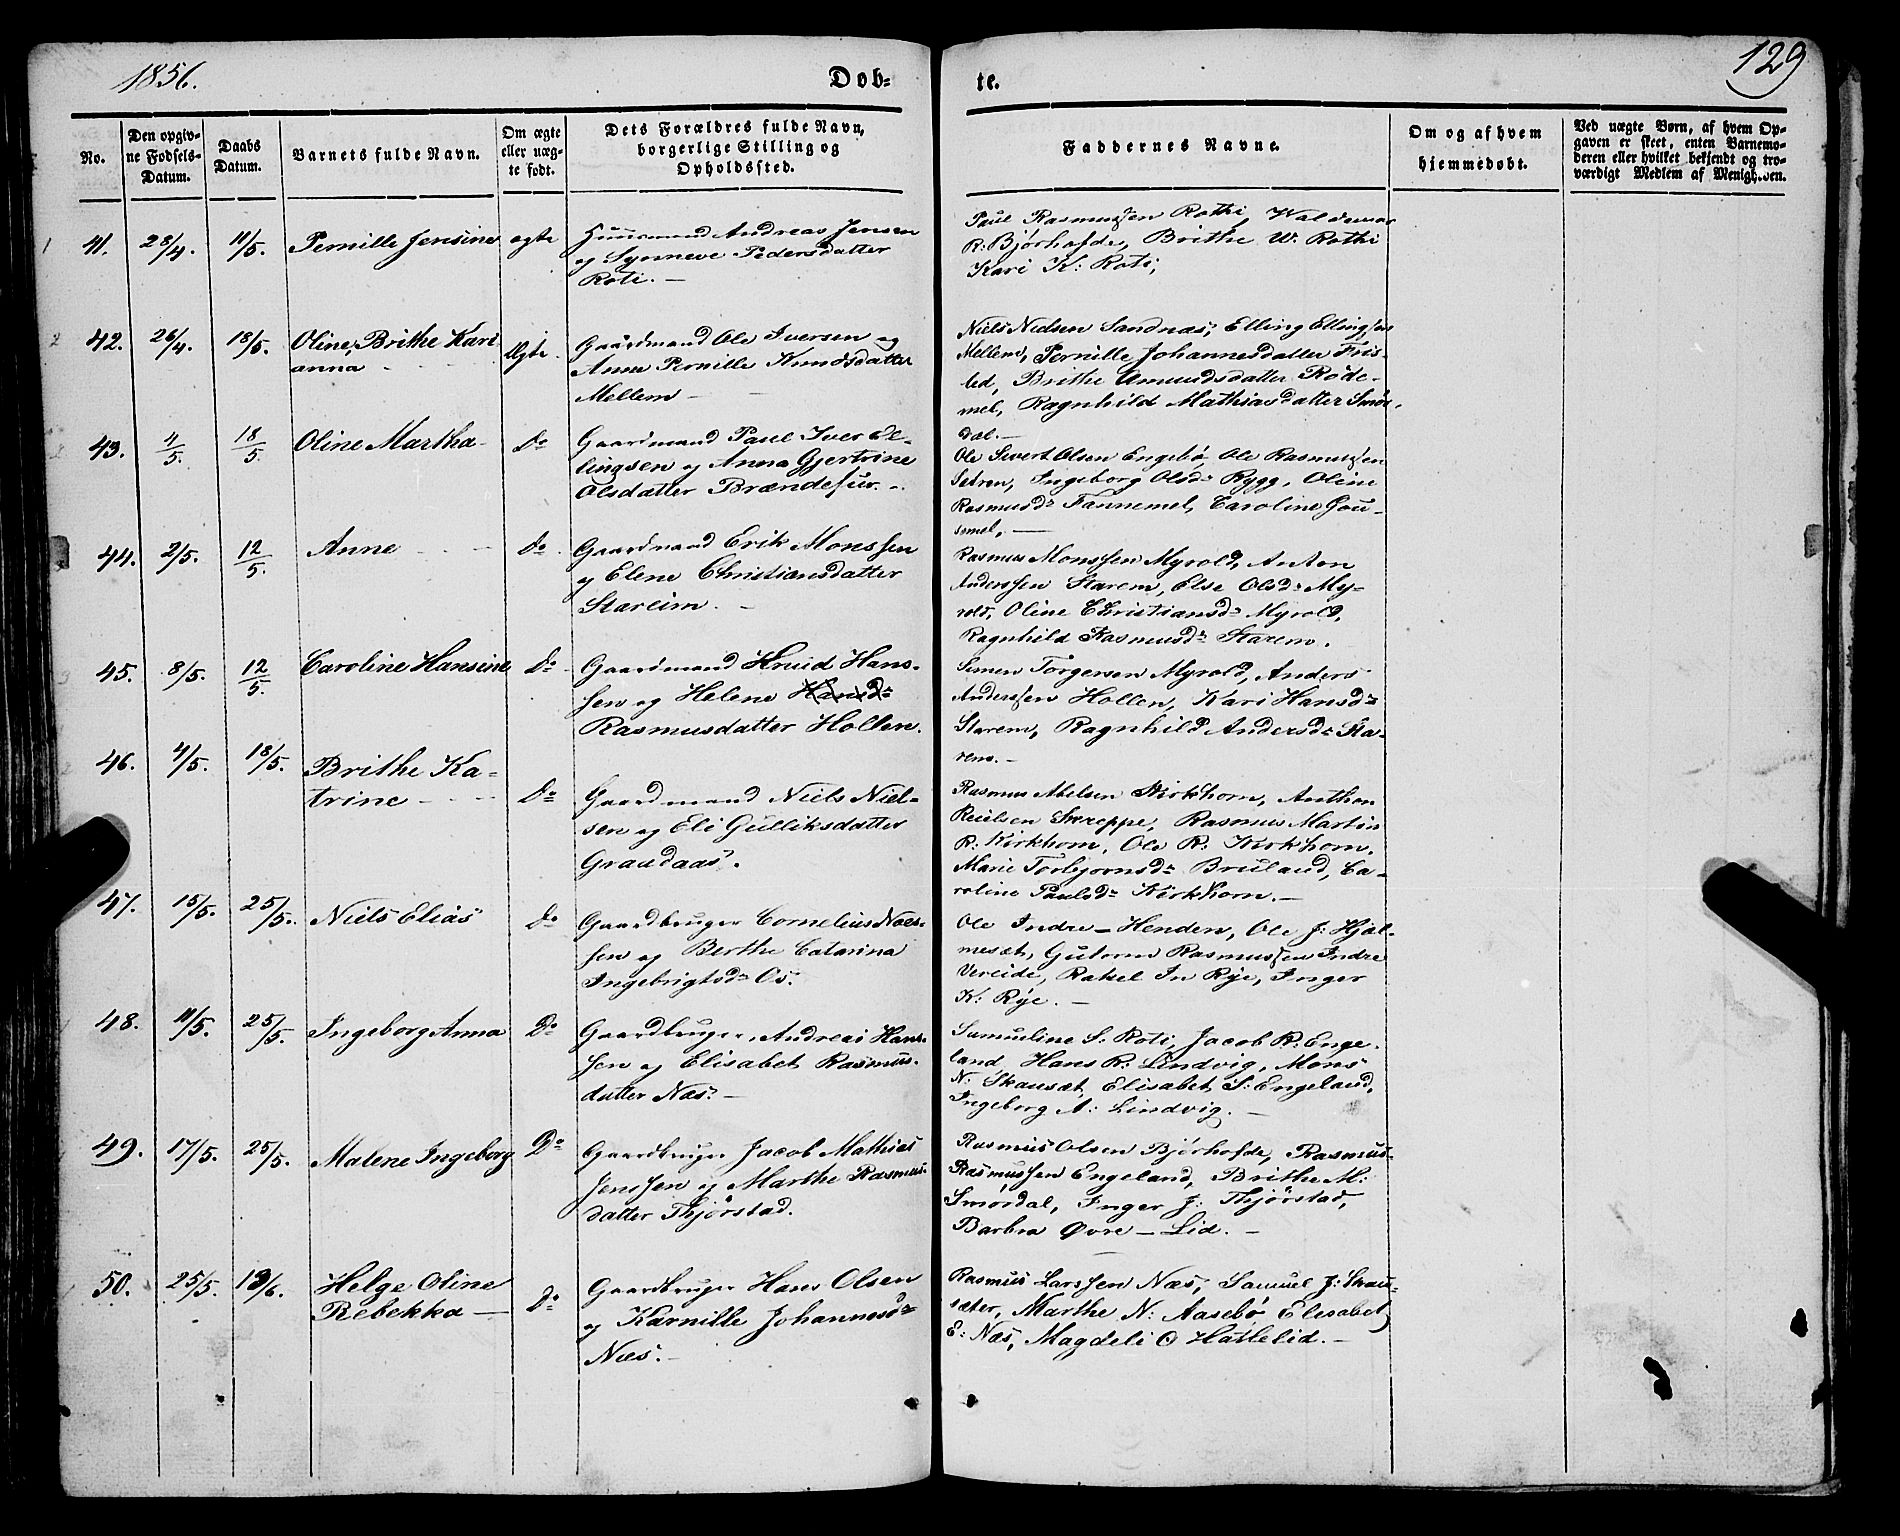 1856.
Døb-
te.
129
No.
Den opgiv-
ne Fødsels-
Datum.
Daabs
Datum.
Barnets fulde Navn.
Om ægte
eller uæg-
te født.
Dets Forældres fulde Navn,
borgerlige Stilling og
Opholdssted.
Faddernes Navne.
Om og af hvem
hjemmedøbt.
Ved uægte Børn, af hvem Op-
gaven er skeet, enten Barnemo-
deren eller hvilket bekjendt og tro-
værdigt Medlem af Menigheden.
41.
28/4.
11/5.
Pernille Jensine
ægte
Huusmand Andreas Jensen
og Synneve Pedersdatter
Roti. —
Paul Rasmussen Rothi, Waldemar
R: Bjørhofde, Brithe W. Rothi
Kari K: Roti,
42.
26/4.
18/5.
Oline Brithe Kari
anna
Ægte
Gaardmand Ole Iversen og
Anne Pernille Knudsdatter
Mellem —
Niels Nielsen Sandnæs, Elling Ellingsen
Mellem, Pernille Johannesdatter
Brithe Amundsdatter Røde-
mel, Ragnhild Mathiasdatter Smør-
dal. —
43.
4/5.
18/5.
Oline Martha
Do
Gaardmand Paul Iver El-
lingsen og Anna Gjertrine
Olsdatter Brændefur. -
Ole Sivert Olsen Engebø, Ole Rasmussen
Setren, Ingeborg Olsd: Rygg, Oline
Rasmusd: Fannemel, Caroline Gou-
semel, —
44.
2/5.
12/5.
Anne
Do
Gaardmand Erik Monssen
og Elene Christiansdatter
Stareim. -
Rasmus Monssen Myrold, Anton
Anderssen Starem, Else Olsd: My-
rold, Oline Christiansd: Myrold,
Ragnhild Rasmusd: Starem.
45.
8/5.
12/5.
Caroline Hansine
Do
Gaardmand Hans-
sen og Helene Hansd:
Rasmusdatter Hollen.
Simen Torgersen Myrold, Anders
Anderssen Hollen, Kari Hansd:
Starem, Ragnhild Andersd: Sta-
rem. —
46.
4/5.
18/5.
Brithe Ka-
trine
Do
Gaardmand Niels Niel-
sen og Eli Gulliksdatter
Graudaas.
Rasmus Abelsen Kirkhorn, Anthon
Skreppe, Rasmus Martin
R: Kirkhorn, Ole R. Kirkhorn,
Marie Torbjørnsd: Bruland, Ca-
roline Paulsd: Kirkhorn. —
47.
15/5.
25/5.
Niels Elias
Do
Gaardbruger Cornelius Næs-
sen og Berthe Catarina
Ingebrigtsd: Os.
Ole Indre-Henden, Ole J: Hjæl-
mesæt, Gutorm Rasmussen Indre
Vereide, Rakel In Rye, Inger
K: Rye. —
48.
11/5.
25/5.
Ingeborg Anna
Do
Gaardbruger Andreas Hans-
sen og Elisabet Rasmus-
datter Næs. —
Samueline S. Roti, Jacob R: Enge-
land, Hans R: Lindvig, Mons
N: Skausæt, Elisabet S: Engeland,
Ingeborg A: Lindvig. —
49.
17/5.
25/5.
Malene Ingeborg
Do
Gaardbruger Jacob Mathias
Jenssen og Marthe Rasmus-
datter Thjørstad.
Rasmus Olsen Bjørhofde, Rasmus
Rasmussen Engeland, Brithe M:
Smørdal, Inger J: Thjørstad,
Barbra Øvre-Lid. —
50.
25/5.
13/6.
Helge Oline
Rebekka —
Do
Gaardbruger Hans Olsen
og Karnille Johannesd:
Næs. —
Rasmus Larssen Næs, Samuel J: Skau-
sæter, Marthe N: Aasebø, Elisabet
E: Næs, Magdeli O Hattelid. —